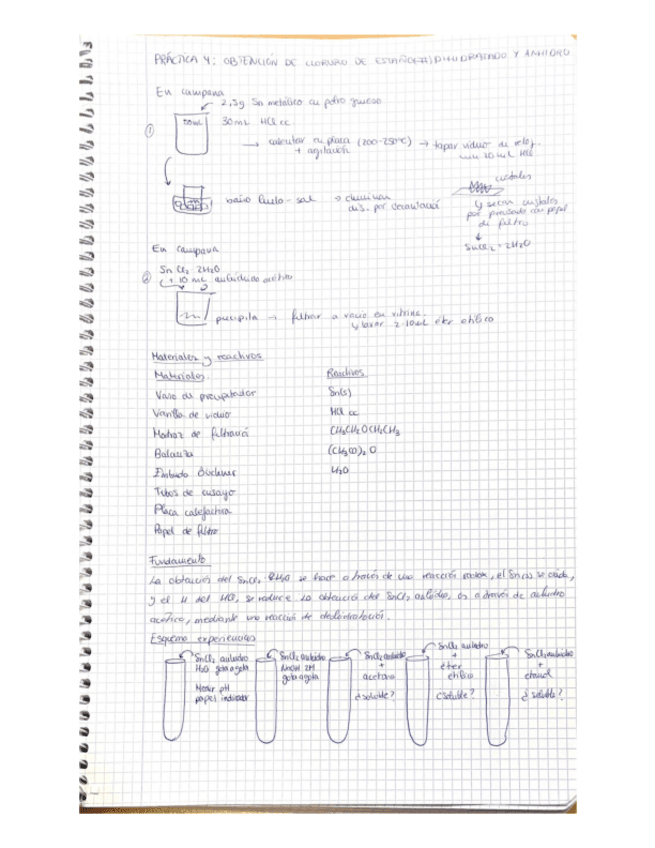 PRÁCTICA 4: OBTENCIÓN DE CLORURO DE ESTAÑO(II) DIHIDRATADO Y ANHIDRO
En campana
2,5g Sn metálico en polvo grueso
50mL 30mL HCl cc
① → calentar en placa (200-250ºC) → tapar vidrio de reloj
+ agitación
cristales
baño hielo-sal → eliminar
dis. por decantación
y secar cristales
por prensado con papel
de filtro
SnCl2 · 2H2O
En campana
② SnCl2 2H2O
+ 10 mL anhídrido acético
precipita → filtrar a vacío en vitrina
y lavar 2-10mL éter etílico
Materiales y reactivos
Materiales Reactivos
Vaso de precipitador Sn(s)
Varilla de vidrio HCl cc
Matraz de CH3CH2OCH2CH3
Balanza (CH3CO)2O
Embudo Büchner H2O
Tubos de ensayo
Placa calefactora
Papel de filtro
Fundamento
La obtención del SnCl2 2H2O se hace a través de una reacción redox, el Sn(s) se oxida,
y el H del HCl, se reduce. La obtención del SnCl2 anhidro, es a través de anhidro
acético, mediante una reacción de deshidratación.
Esquema experiencias
SnCl2 anhidro
H2O gota a gota
Medir pH
papel indicador
SnCl2 anhidro
NaOH 2M
gota a gota
SnCl2 anhidro
+
acetona
¿soluble?
SnCl2 anhidro
+
éter
etílico
¿soluble?
SnCl2 anhidro
+
etanol
¿soluble?